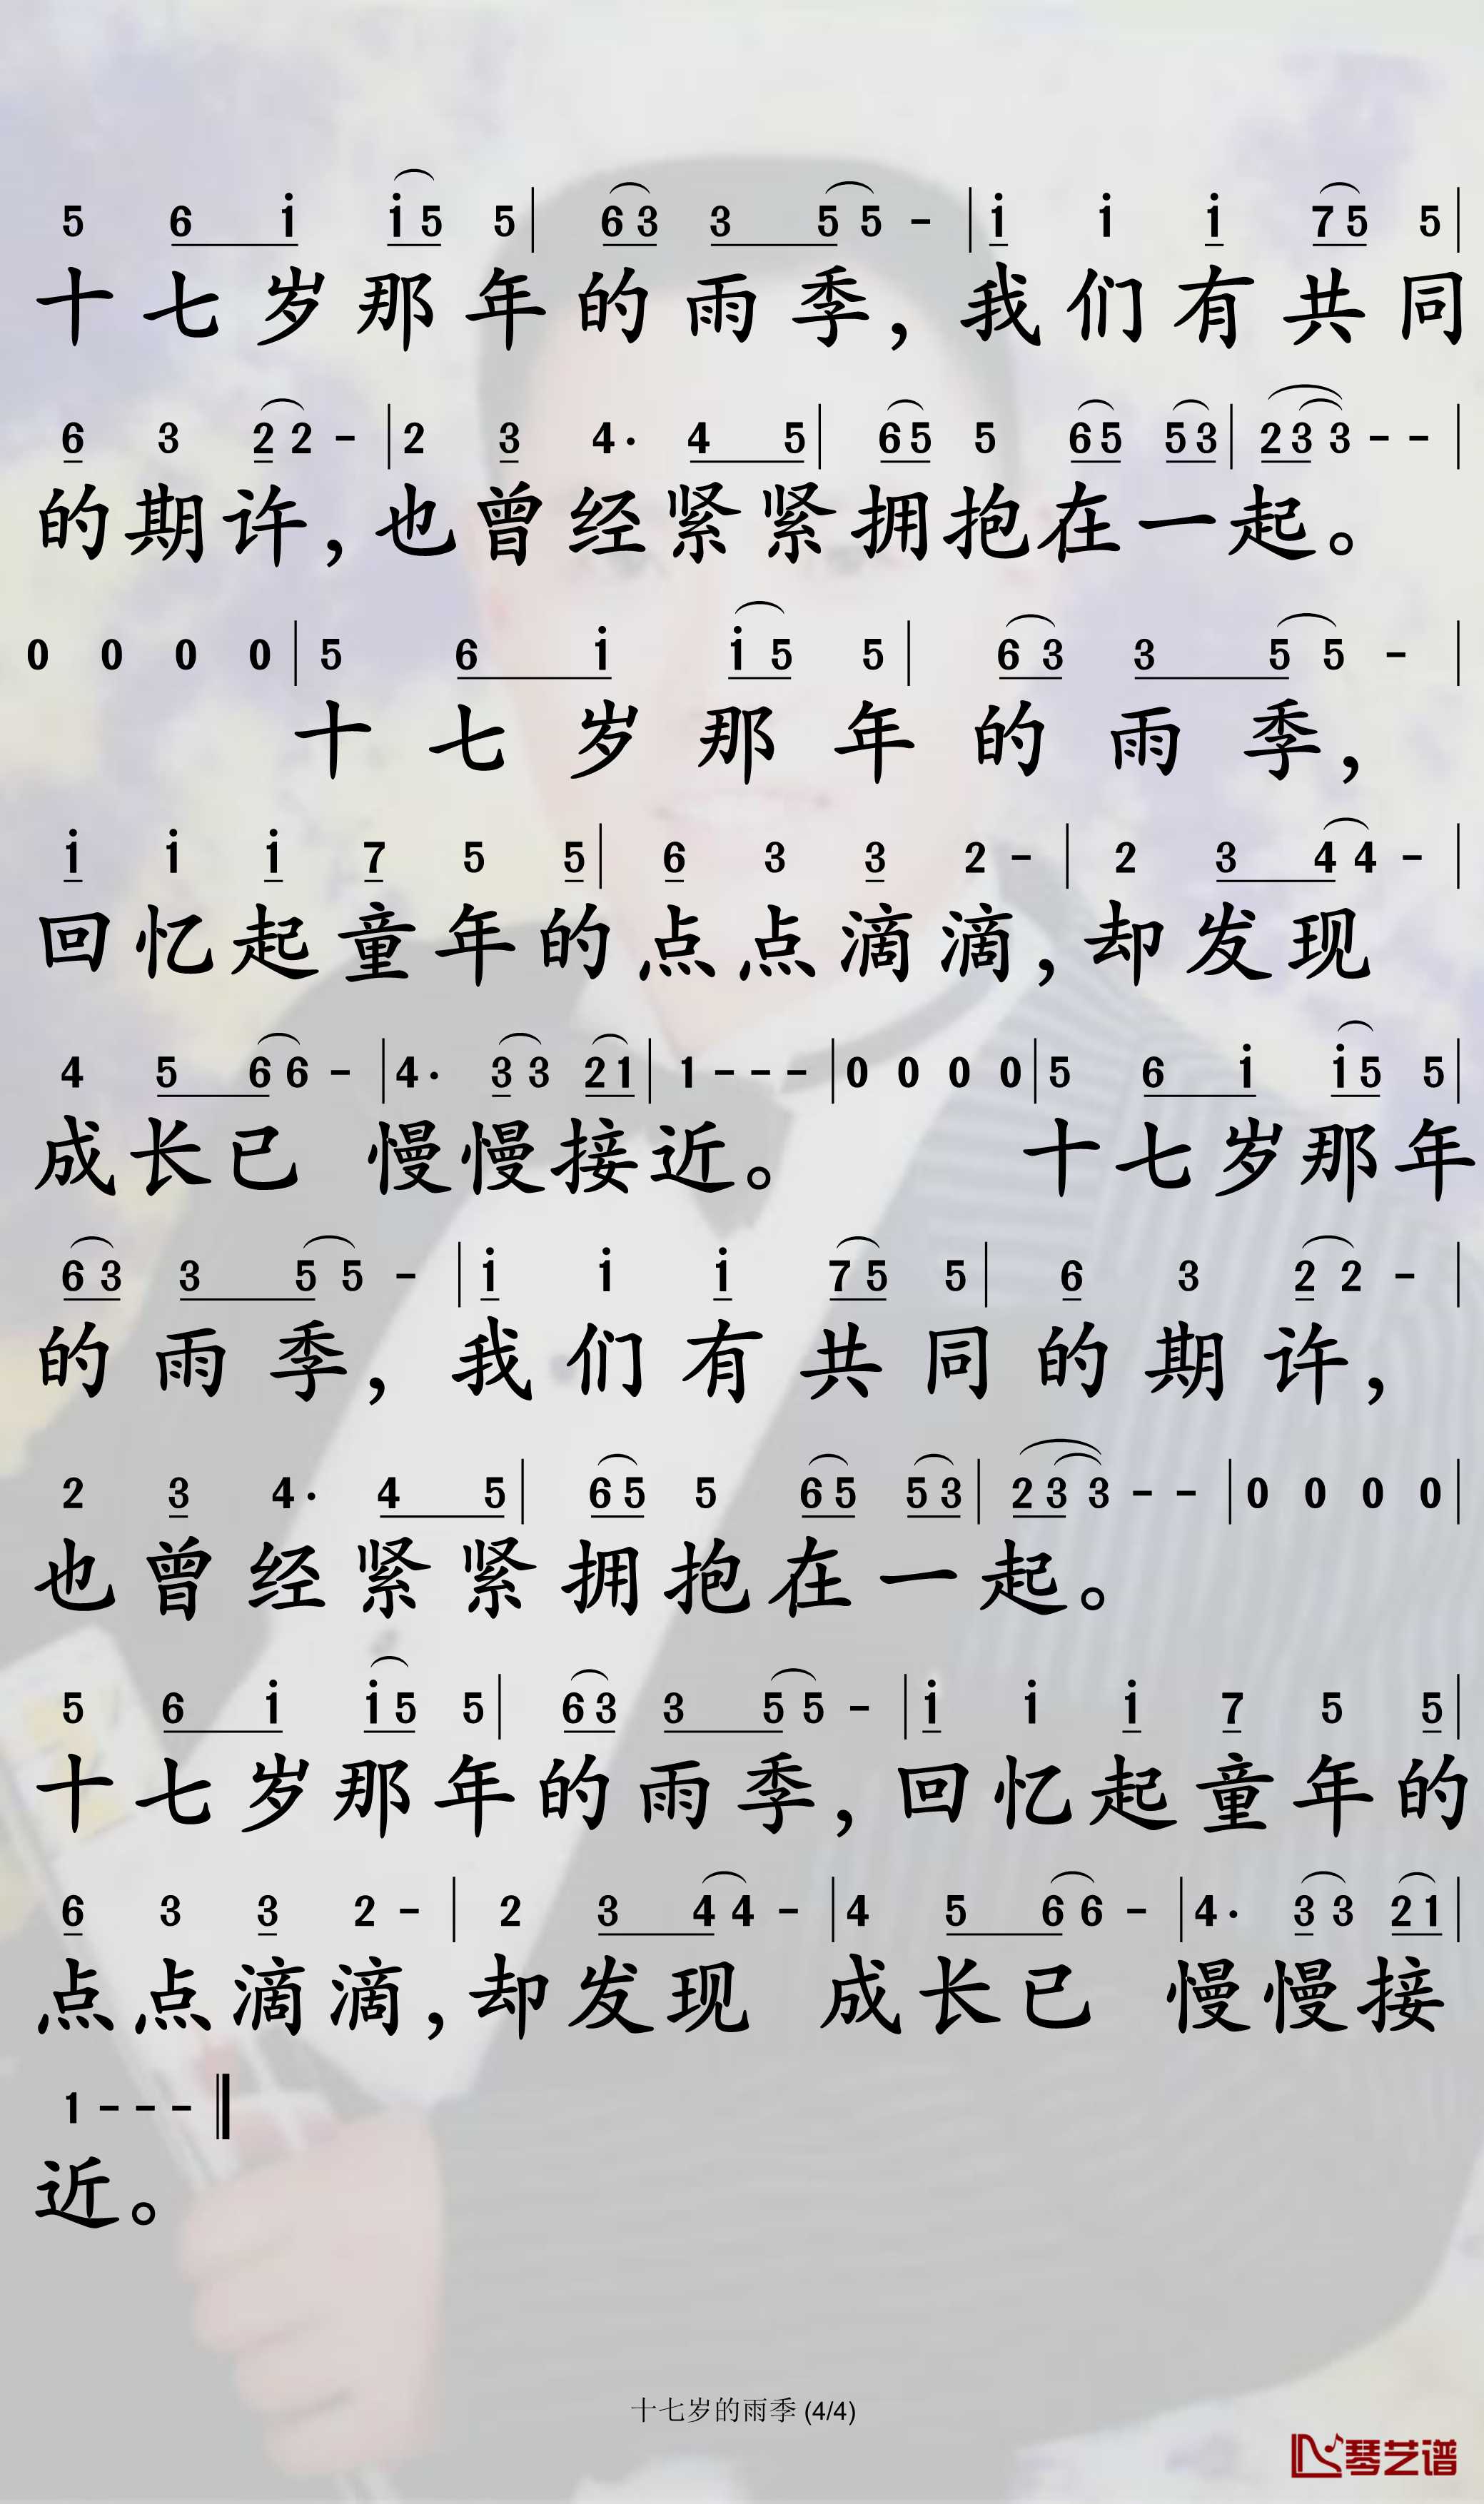 5 6 i i 5 5 | 6 3 3 5 5 - | i i i 7 5 5 |
十七岁那年的雨季,我们有共同
6 3 2 2 - | 2 3 4· 4 5 | 6 5 5 6 5 5 3 | 2 3 3 - - |
的期许,也曾经紧紧拥抱在一起。
0 0 0 0 | 5 6 i i 5 5 | 6 3 3 5 5 - |
十七岁那年的雨季,
i i i 7 5 5 | 6 3 3 2 - | 2 3 4 4 - |
回忆起童年的点点滴滴,却发现
4 5 6 6 - | 4· 3 3 2 1 | 1 - - - | 0 0 0 0 | 5 6 i i 5 5 |
成长已 慢慢接近。 十七岁那年
6 3 3 5 5 - | i i i 7 5 5 | 6 3 2 2 - |
的雨季,我们有共同的期许,
2 3 4· 4 5 | 6 5 5 6 5 5 3 | 2 3 3 - - | 0 0 0 0 |
也曾经紧紧拥抱在一起。
5 6 i i 5 5 | 6 3 3 5 5 - | i i i 7 5 5 |
十七岁那年的雨季,回忆起童年的
6 3 3 2 - | 2 3 4 4 - | 4 5 6 6 - | 4· 3 3 2 1 |
点点滴滴,却发现 成长已 慢慢接
1 - - - ‖
近。
十七岁的雨季 (4/4)
琴艺谱